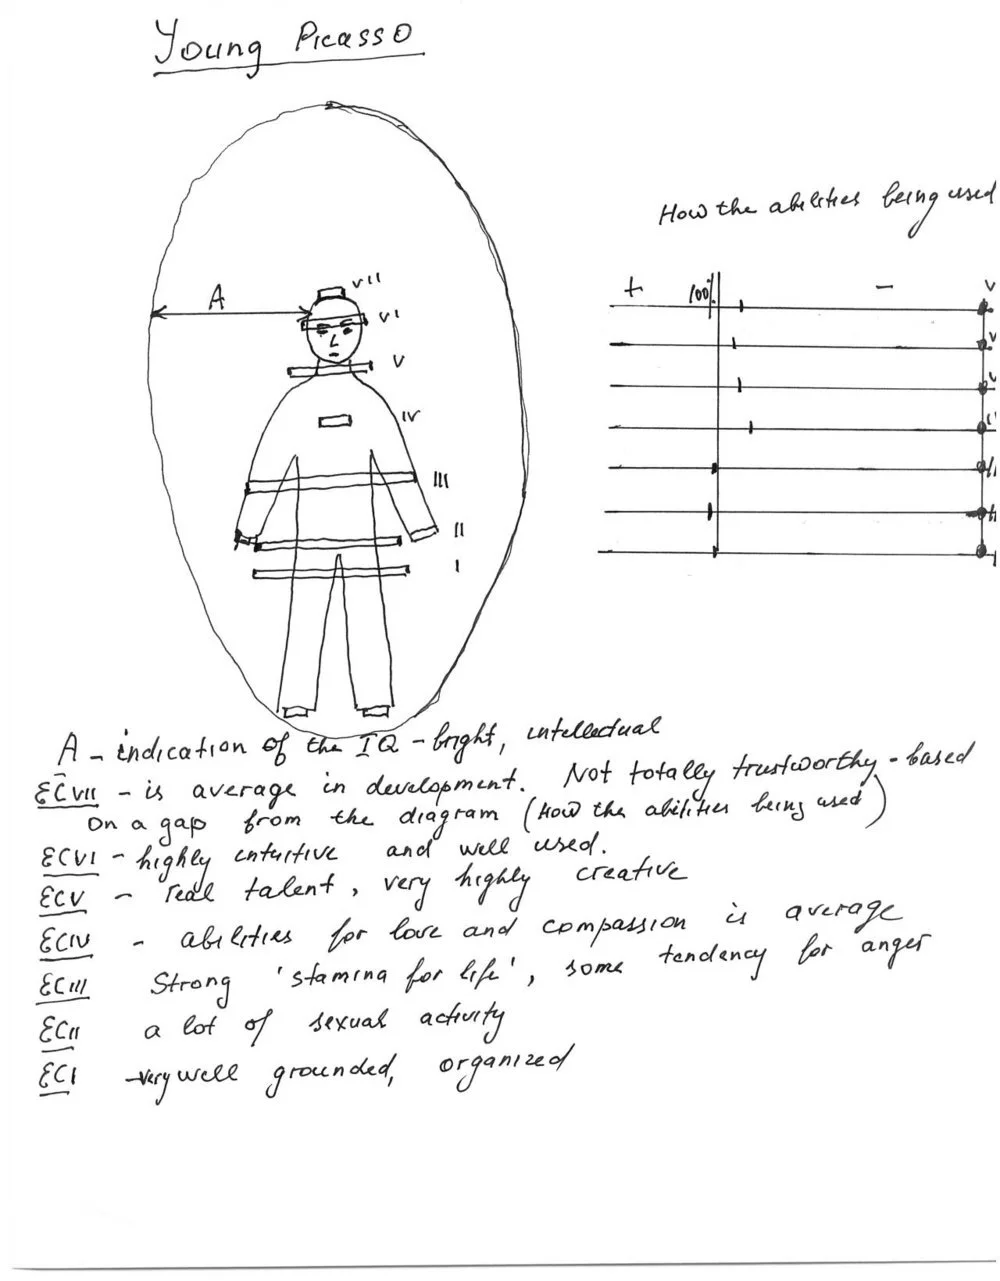 Young Picasso
How the abilities being used
+ 100% -
A
VII
VI
V
IV
III
II
I
A - indication of the IQ - bright, intellectual
ECVII - is average in development. Not totally trustworthy - based
on a gap from the diagram (How the abilities being used)
ECVI - highly intuitive and well used.
ECV - real talent, very highly creative
ECIV - abilities for love and compassion is average
ECIII Strong 'stamina for life', some tendency for anger
ECII a lot of sexual activity
ECI - very well grounded, organized